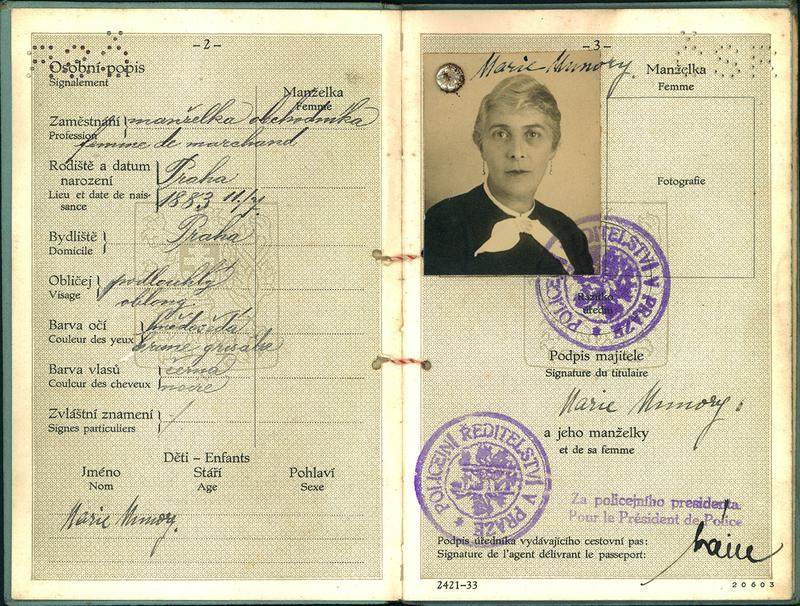 – 2 –
Osobní popis
Signalement
Manželka
Femme
Zaměstnání manželka obchodníka
Profession femme de marchand
Rodiště a datum narození Praha
Lieu et date de nais-sance 1883 11/
Bydliště Praha
Domicile
Obličej podlouhlý
Visage oblong
Barva očí hnědošedá
Couleur des yeux brune grisâtre
Barva vlasů černá
Couleur des cheveux noire
Zvláštní znamení /
Signes particuliers
Děti – Enfants
Jméno Stáří Pohlaví
Nom Age Sexe
Marie
– 3 –
Marie
Manželka
Femme
Fotografie
POLICEJNÍ ŘEDITELSTVÍ V PRAZE
Razítko
úřední
Podpis majitele
Signature du titulaire
Marie
a jeho manželky
et de sa femme
POLICEJNÍ ŘEDITELSTVÍ V PRAZE
Za policejního presidenta
Pour le Président de Police
Podpis úředníka vydávajícího cestovní pas:
Signature de l'agent délivrant le passeport:
2421–33
20603